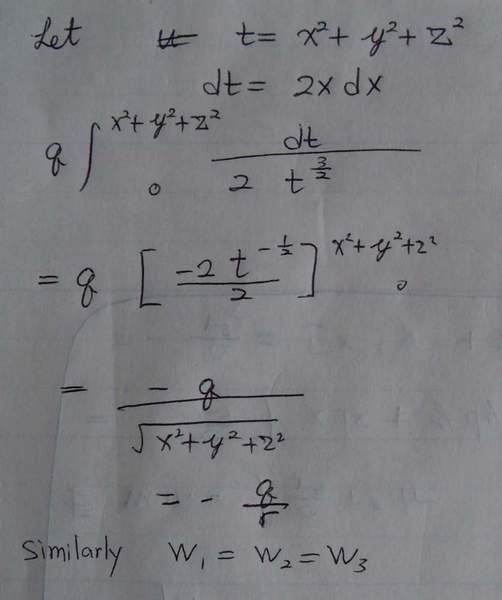 Let t = x²+ y²+ z²
dt = 2x dx
q ∫₀^(x²+y²+z²) dt / (2 t^(3/2))
= q [ -2 t^(-1/2) / 2 ]₀^(x²+y²+z²)
= - q / √(x²+y²+z²)
= - q/r
Similarly W₁ = W₂ = W₃